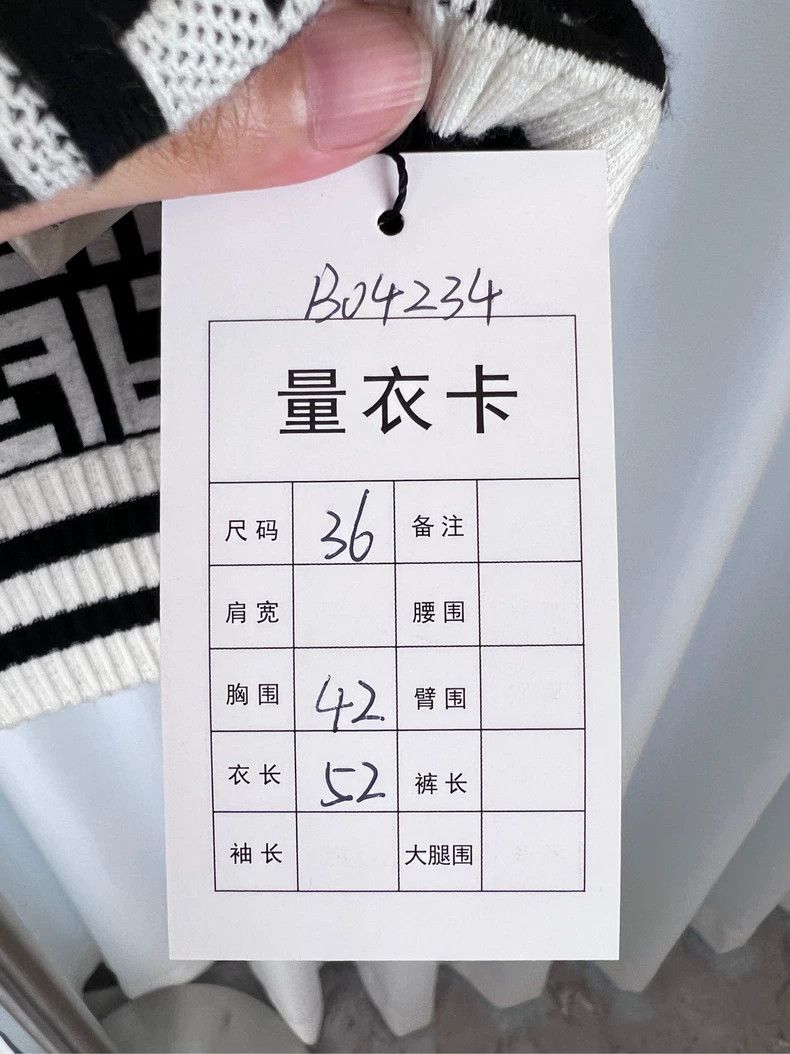 B04234
量衣卡
尺码 36 备注
肩宽 腰围
胸围 42 臂围
衣长 52 裤长
袖长 大腿围